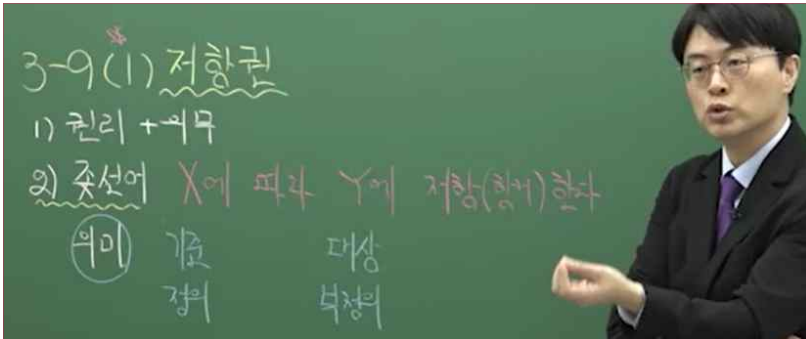 3-9(1) 저항권
1) 권리 + 의무
2) 좆선어 X에 따라 Y에 저항(항거)한다
의미 기준 대상
정의 부정의